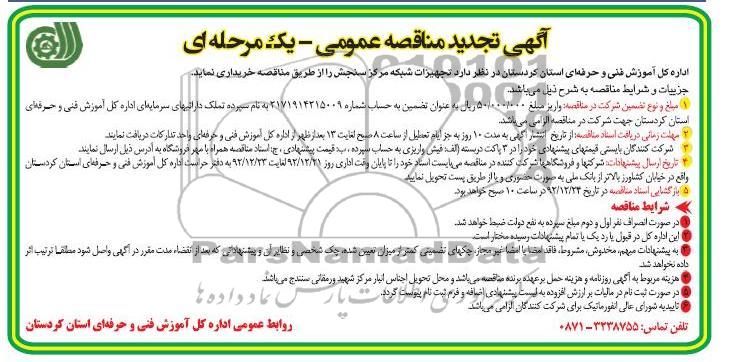 آگهی تجدید مناقصه عمومی - یک مرحله ای
اداره کل آموزش فنی و حرفه‌ای استان کردستان در نظر دارد تجهیزات شبکه مرکز سنجش را از طریق مناقصه خریداری نماید.
جزییات و شرایط مناقصه به شرح ذیل می‌باشد.
۱ مبلغ و نوع تضمین شرکت در مناقصه: واریز مبلغ ۵۰/۰۰۰/۰۰۰ ریال به عنوان تضمین به حساب شماره ۲۱۷۱۹۱۴۲۱۵۰۰۹ به نام سپرده تملک دارائیهای سرمایه‌ای اداره کل آموزش فنی و حرفه‌ای
استان کردستان جهت شرکت در مناقصه الزامی می‌باشد.
۲ مهلت زمانی دریافت اسناد مناقصه: از تاریخ انتشار آگهی به مدت ۱۰ روز به جز ایام تعطیل از ساعت ۸ صبح لغایت ۱۳ بعدازظهر از اداره کل آموزش فنی و حرفه‌ای واحد تدارکات دریافت نمایند.
۳ شرکت کنندگان بایستی قیمتهای پیشنهادی خود را در ۳ پاکت دربسته (الف: فیش واریزی به حساب سپرده ، ب: قیمت پیشنهادی ، ج: اسناد مناقصه همراه با مهر فروشگاه به آدرس ذیل ارسال نمایند.
۴ تاریخ ارسال پیشنهادات: شرکتها و فروشگاهها شرکت کننده در مناقصه می‌بایست اسناد خود را تا پایان وقت اداری روز ۹۲/۱۲/۲۱ لغایت ۹۲/۱۲/۲۳ به دفتر حراست اداره کل آموزش فنی و حرفه‌ای استان کردستان
واقع در خیابان کشاورز بالاتر از بانک ملی به صورت حضوری و یا از طریق پست تحویل نمایید
۵ بازگشایی اسناد مناقصه در تاریخ ۹۲/۱۲/۲۴ در ساعت ۱۰ صبح خواهد بود.
شرایط مناقصه
۱ در صورت انصراف نفر اول و دوم مبلغ سپرده به نفع دولت ضبط خواهد شد.
۲ این اداره کل در قبول یا رد یک یا تمام پیشنهادات رسیده مختار است.
۳ به پیشنهادات مبهم، مخدوش، مشروط، فاقد امضا یا امضا غیر مجاز، چکهای تضمینی کمتر از میزان تعیین شده، چک شخصی و نظایر آن و پیشنهاداتی که بعد از انقضاء مدت مقرر در آگهی واصل شود مطلقا ترتیب اثر
داده نخواهد شد.
۴ هزینه مربوط به آگهی روزنامه و هزینه حمل برعهده برنده مناقصه می‌باشد و محل تحویل اجناس انبار مرکز شهید ورمقانی سنندج می‌باشد.
۵ در صورت ثبت نام در مالیات بر ارزش افزوده به لیست پیشنهادی اضافه و فرم ثبت نام پیوست گردد.
۶ تاییدیه شورای عالی انفورماتیک برای شرکت کنندگان الزامی می‌باشد.
تلفن تماس: ۳۲۳۸۷۵۵ - ۰۸۷۱
روابط عمومی اداره کل آموزش فنی و حرفه‌ای استان کردستان